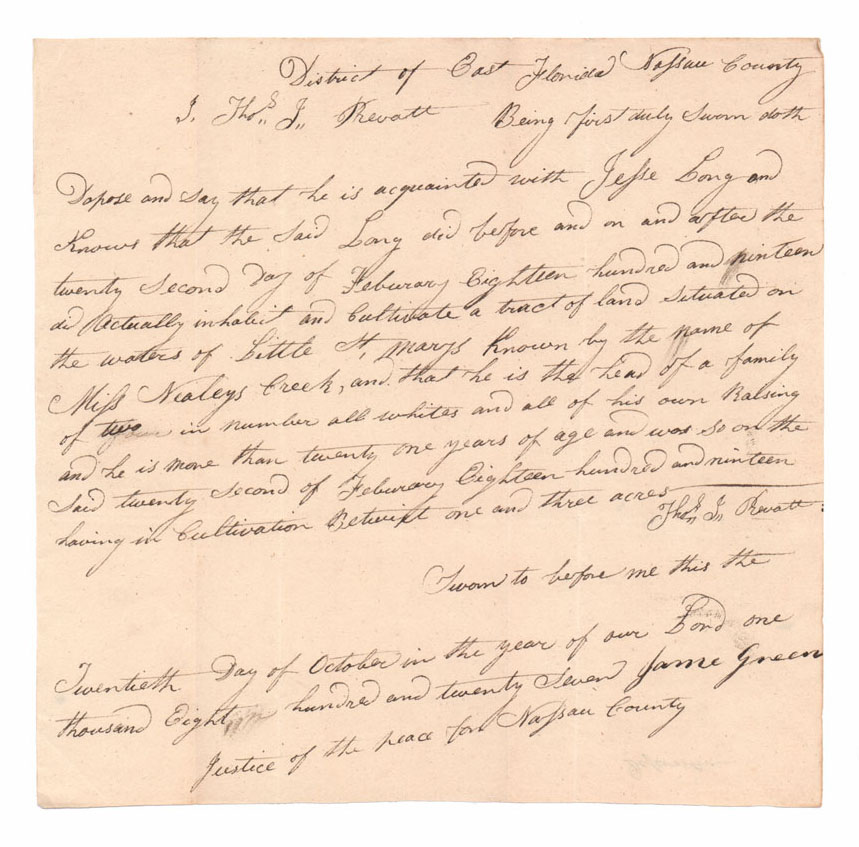 District of East Florida Nassau County
I. Thos. J. Prevatt Being first duly Sworn doth
Depose and Say that he is acquainted with Jesse Long and
Knows that the Said Long did before and on and after the
twenty Second Day of Feburary Eighteen hundred and ninteen
did Actually inhabit and Cultivate a tract of land Situated on
the waters of Little St, Marys Known by the name of
Miss Nealeys Creek, and that he is the head of a family
of two in number all whites and all of his own Raising
and he is more than twenty one years of age and was So on the
Said twenty Second of Feburary Eighteen hundred and ninteen
having in Cultivation Betwixt one and three acres
Thos. J. Prevatt
Sworn to before me this the
Twentieth Day of October in the year of our Lord one
thousand Eight hundred and twenty Seven Jame Green
Justice of the peace for Nassau County